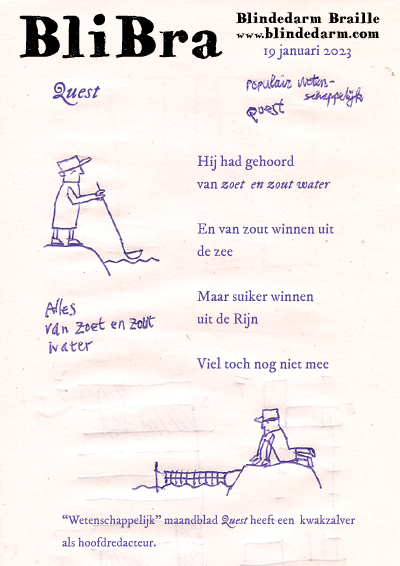 BliBra
Blindedarm Braille
www.blindedarm.com
19 januari 2023
Quest
populair weten-
schappelijk
quest
Hij had gehoord
van zoet en zout water
En van zout winnen uit
de zee
Maar suiker winnen
uit de Rijn
Viel toch nog niet mee
Alles
van zoet en zout
water
“Wetenschappelijk” maandblad Quest heeft een kwakzalver
als hoofdredacteur.